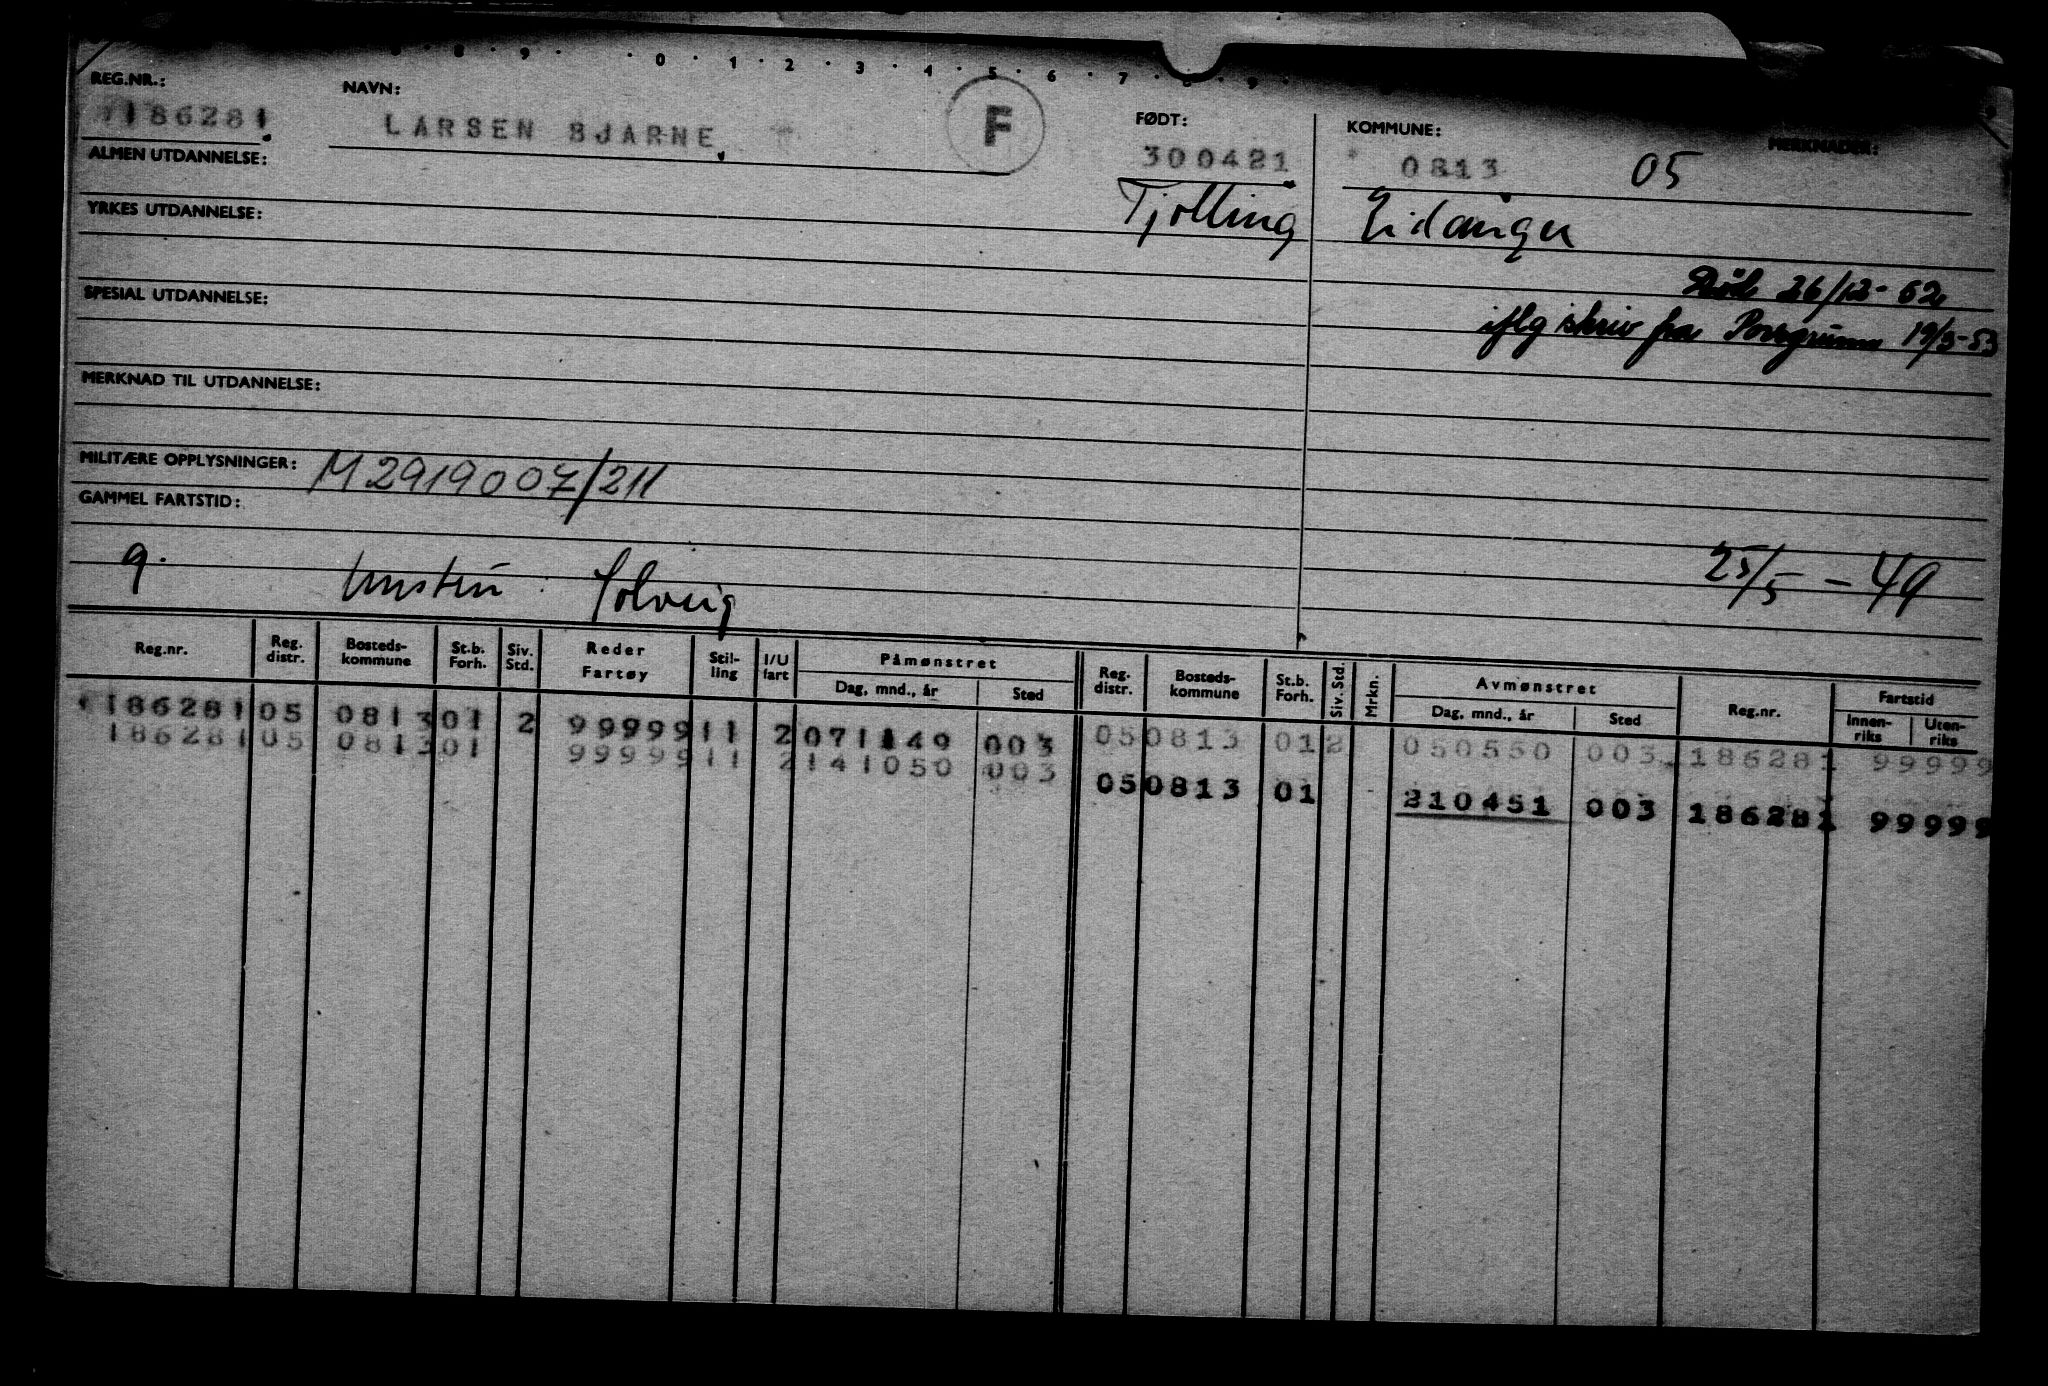 8 · 9 · · 0 · 1 · 2 · 3 · 4 · 5 · 6 · 7 · 8 · 9
REG.NR.: NAVN: FØDT: KOMMUNE: MERKNADER:
186281 LARSEN BJARNE F 300421 0813 05
ALMEN UTDANNELSE:
Tjølling Eidanger
YRKES UTDANNELSE:
Død 26/12- 52
SPESIAL UTDANNELSE:
iflg skriv fra Porsgrunn 19/3-53
MERKNAD TIL UTDANNELSE:
MILITÆRE OPPLYSNINGER: M2919007/211
GAMMEL FARTSTID:
g. hustru: Solveig 25/5-49
Reg.nr. Reg. distr. Bosteds-kommune St.b. Forh. Siv. Std. Reder Fartøy Stil-ling I/U fart Påmønstret Dag, mnd., år Sted Reg. distr. Bosteds-kommune St.b. Forh. Siv. Std. Mrkn. Avmønstret Dag, mnd., år Sted Reg.nr. Fartstid Innen-riks Uten-riks
186281 05 0813 01 2 99999 11 2 071149 003 05 0813 01 2 050550 003 186281 99999
186281 05 0813 01 99999 11 2 141050 003
05 0813 01 210451 003 186281 99999